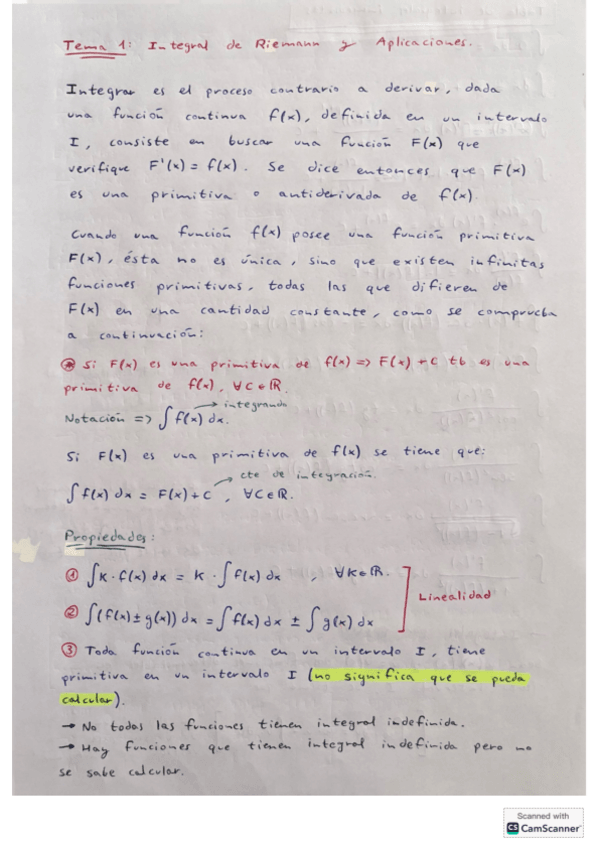 Tema 1: Integral de Riemann y Aplicaciones.
Integrar es el proceso contrario a derivar, dada
una función continua f(x), definida en un intervalo
I, consiste en buscar una función F(x) que
verifique F'(x) = f(x). Se dice entonces que F(x)
es una primitiva o antiderivada de f(x).
Cuando una función f(x) posee una función primitiva
F(x), ésta no es única, sino que existen infinitas
funciones primitivas, todas las que difieren de
F(x) en una cantidad constante, como se comprueba
a continuación:
⊛ Si F(x) es una primitiva de f(x) => F(x) + C tb es una
primitiva de f(x), ∀C∈ℝ.
→ integrando
Notación => ∫f(x) dx.
Si F(x) es una primitiva de f(x) se tiene que:
→ cte de integración.
∫f(x) dx = F(x) + C , ∀C∈ℝ.
Propiedades:
① ∫K·f(x) dx = K·∫f(x) dx , ∀K∈ℝ.
Linealidad
② ∫(f(x) ± g(x)) dx = ∫f(x) dx ± ∫g(x) dx
③ Toda función continua en un intervalo I, tiene
primitiva en un intervalo I (no significa que se pueda
calcular).
→ No todas las funciones tienen integral indefinida.
→ Hay funciones que tienen integral indefinida pero no
se sabe calcular.
Scanned with
CS CamScanner